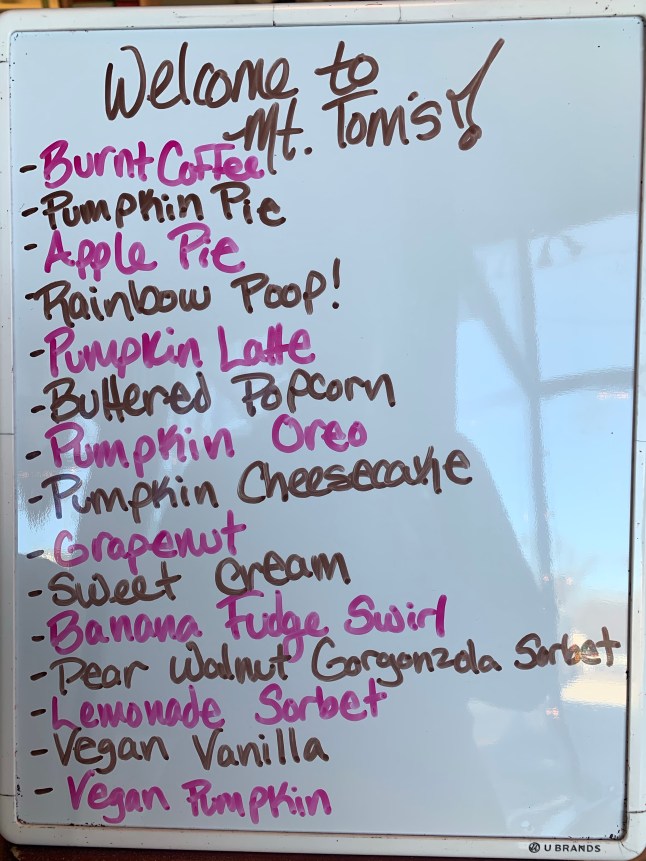 Welcome to
Mt. Tom's!
- Burnt Coffee
- Pumpkin Pie
- Apple Pie
- Rainbow Poop!
- Pumpkin Latte
- Buttered Popcorn
- Pumpkin Oreo
- Pumpkin Cheesecake
- Grapenut
- Sweet Cream
- Banana Fudge Swirl
- Pear Walnut Gorgonzola Sorbet
- Lemonade Sorbet
- Vegan Vanilla
- Vegan Pumpkin
U BRANDS